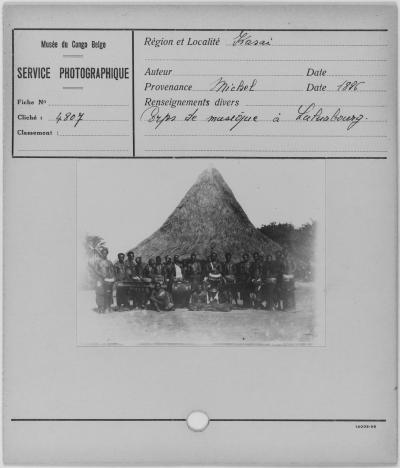 Musée du Congo Belge
SERVICE PHOTOGRAPHIQUE
Fiche Nº
Cliché : 4807
Classement :
Région et Localité Kasai
Auteur Date
Provenance Michel Date 1886
Renseignements divers
Corps de musique à Luluabourg.